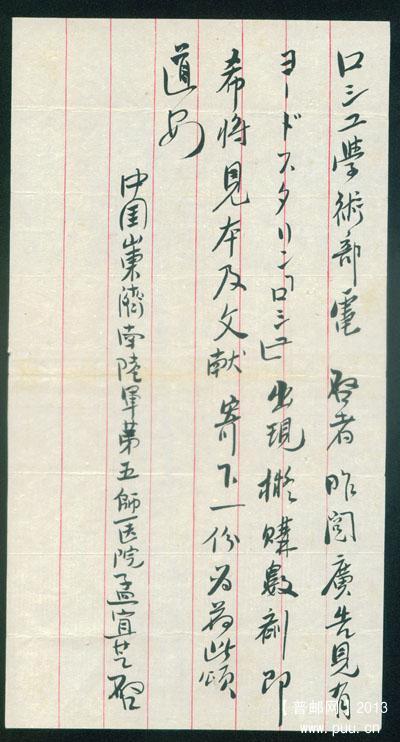 ロシユ學術部電 啓者昨閲廣告見有
ヨードスタリン「ロシユ」出現擬購數劑即
希將見本及文献寄下一份为荷此頌
道安
中国山東濟南陸軍第五師医院孟宜芝啓
【普邮网】2013
www.puu.cn